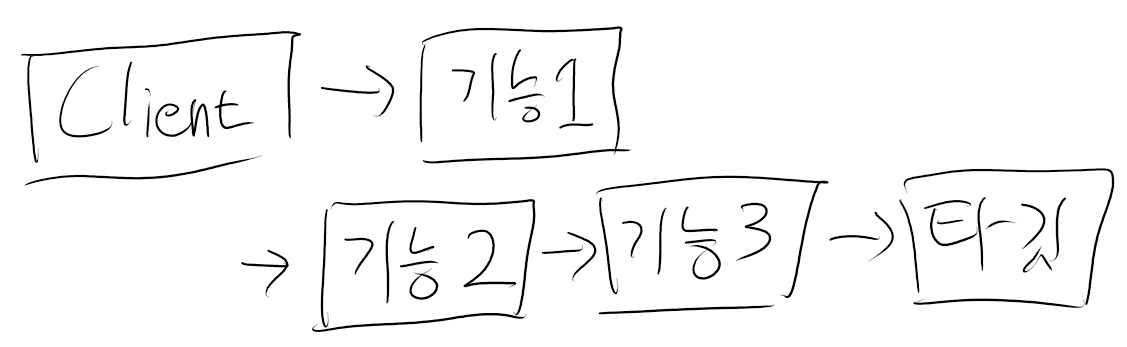 Client → 기능1
→ 기능2 → 기능3 → 타깃